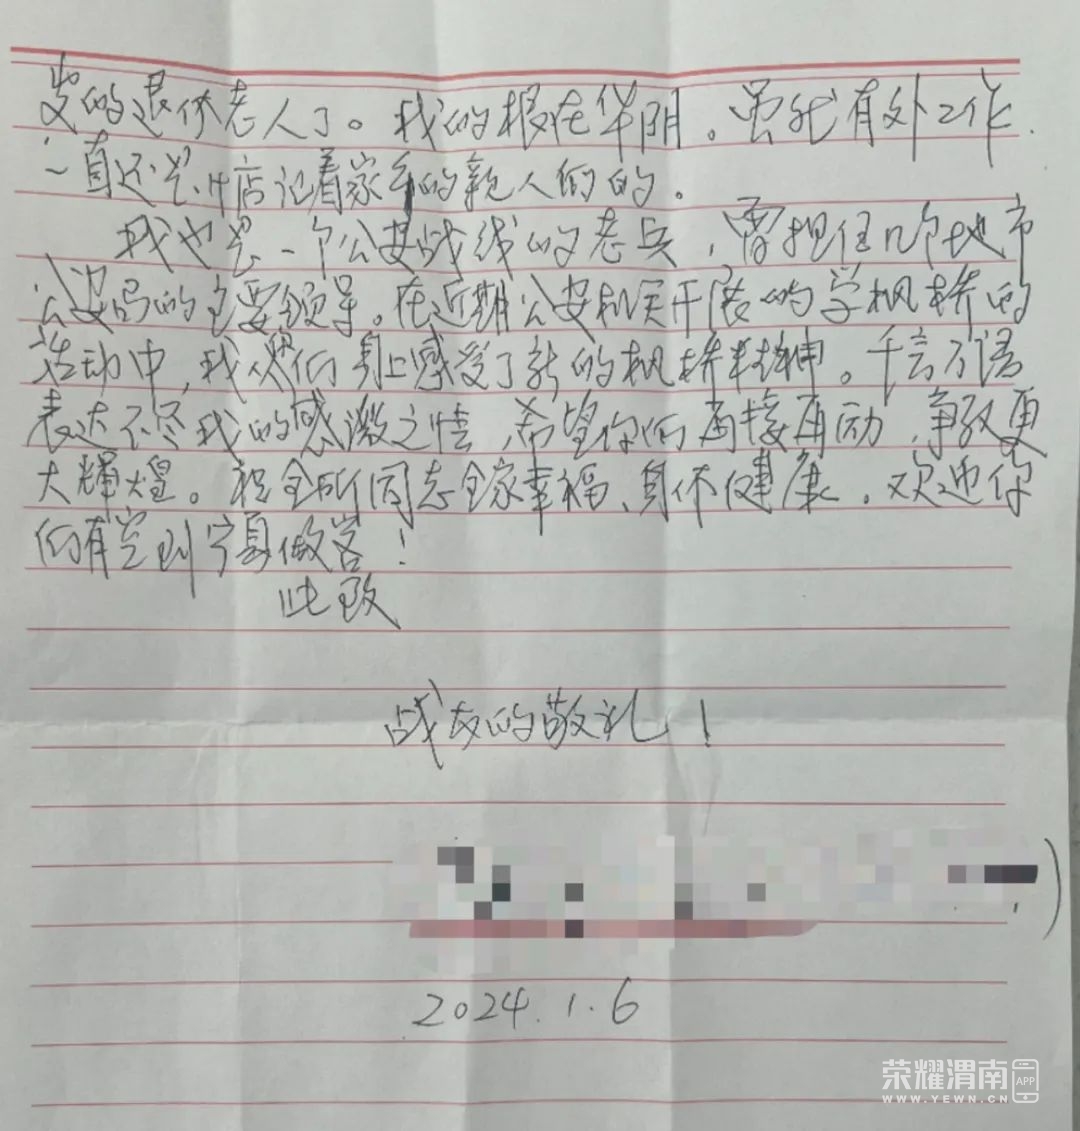 岁的退休老人了。我的根在华阴。虽然有外工作.
一直还是惦记着家乡的亲人们的。
我也是一个公安战线的老兵，曾担任几个地市
公安局的主要领导。在近期公安机关开展的学枫桥的
活动中，我从你们身上感受了新的枫桥精神。千言万语
表达不尽我的感激之情，希望你们再接再励，争取更
大辉煌。祝全所同志全家幸福、身体健康。欢迎你
们有空到宁夏做客！
此致
战友的敬礼！
2024.1.6
荣耀渭南 APP
WWW.YEWN.CN